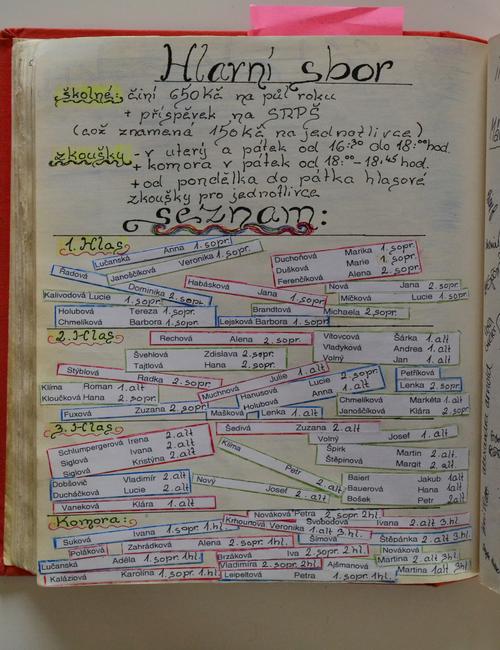 Hlavní sbor
školné: činí 650 Kč na půl roku
+ příspěvek na SRPŠ
(což znamená 150 Kč na jednotlivce)
zkoušky - v úterý a pátek od 16:30 do 18:00 hod.
+ komora v pátek od 18:00-18:45 hod.
+ od pondělka do pátka hlasové
zkoušky pro jednotlivce
seznam:
1. Hlas
Lučanská Anna 1. sopr.
Řadová Dominika 2. sopr.
Janoščíková Veronika 1. sopr.
Duchoňová Marika 1. sopr.
Dušková Marie 1. sopr.
Ferenčíková Alena 2. sopr.
Habásková Jana 1. sopr.
Nová Jana 2. sopr.
Kalivodová Lucie 1. sopr.
Mičková Lucie 1. sopr.
Holubová Tereza 1. sopr.
Chmelíková Barbora 1. sopr.
Brandtová Michaela 2. sopr.
Lejsková Barbora 1. sopr.
2. Hlas
Rechová Alena 2. sopr.
Vítovcová Šárka 1. alt
Vladyková Andrea 1. alt
Volný Jan 1. alt
Švehlová Zdislava 2. sopr.
Tajtlová Hana 2. sopr.
Stýblová Radka 2. sopr.
Muchnová Julie 1. alt
Petříková Lenka 2. sopr.
Klíma Roman 1. alt
Kloučková Hana 2. sopr.
Hanusová Lucie 2. sopr.
Holubová Anna 1. alt
Chmelíková Markéta 1. alt
Janoščíková Klára 2. sopr.
Fuxová Zuzana 2. sopr.
Mašková Lenka 1. alt
3. Hlas
Šedivá Zuzana 2. alt
Schlumpergerová Irena 2. alt
Siglová Ivana 2. alt
Siglová Kristýna 2. alt
Klíma Petr 2. alt
Volný Josef 1. alt
Špirk Martin 2. alt
Štěpinová Margit 2. alt
Dobšovič Vladimír 2. alt
Ducháčková Lucie 2. alt
Nový Josef 2. alt
Baierl Jakub 1. alt
Bauerová Hana 1. alt
Bošek Petr 2. alt
Vaneková Klára 1. alt
Komora:
Nováková Petra 2. hl.
Suková Ivana 1. sopr. 1. hl.
Krhounová Veronika 1. alt 3. hl.
Svobodová Ivana 2. alt 3. hl.
Poláková
Zahrádková Alena 2. sopr. 1. hl.
Šímová Štěpánka 2. alt 3. hl.
Lučanská Adéla 1. sopr. 1 hl.
Brzáková Iva 2. sopr. 2 hl.
Nováková Martina 2. alt 3 hl.
Vladimíra 2. sopr. 2 hl.
Kaláziová Karolína 1. sopr. 1 hl.
Leipeltová Petra 1. sopr. 1 hl.
Ajšmanová Martina 1. alt 3 hl.